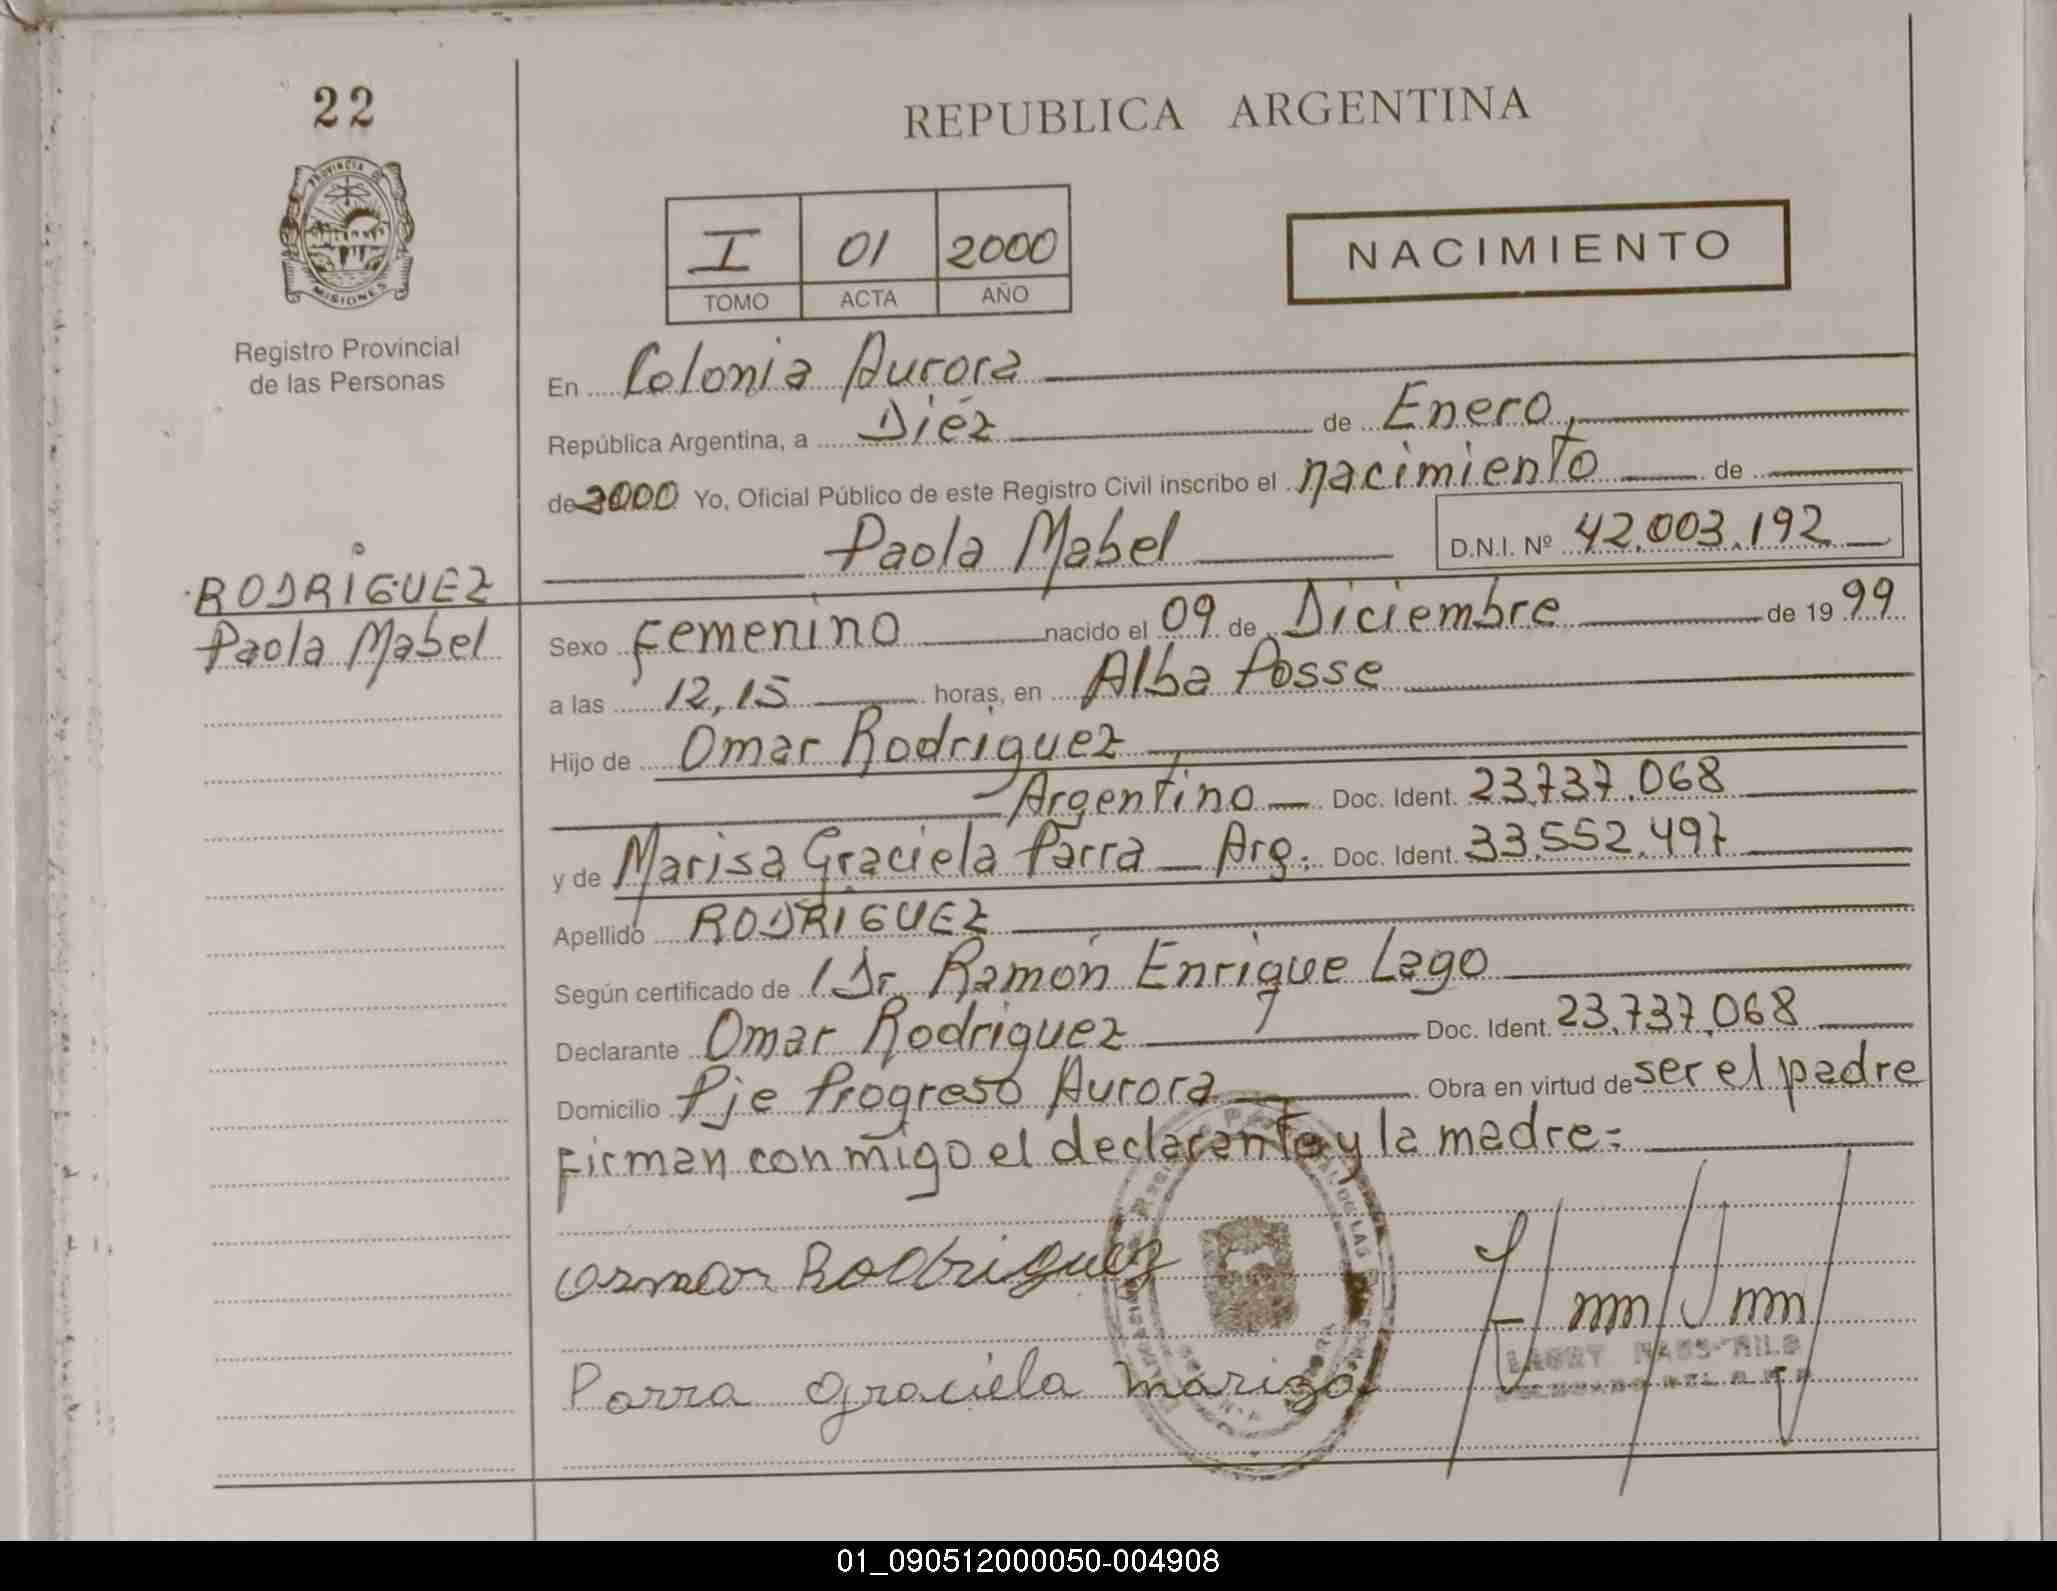 22
REPUBLICA ARGENTINA
PROVINCIA DE
MISIONES
I 01 2000
TOMO ACTA AÑO
NACIMIENTO
Registro Provincial
de las Personas
En Colonia Aurora
República Argentina, a Diéz de Enero,
de 2000 Yo, Oficial Público de este Registro Civil inscribo el nacimiento de
Paola Mabel D.N.I. Nº 42.003.192
RODRIGUEZ
Paola Mabel
Sexo Femenino nacido el 09 de Diciembre de 19 99
a las 12,15 horas, en Alba Posse
Hijo de Omar Rodriguez
Argentino Doc. Ident. 23.737.068
y de Marisa Graciela Parra Arg. Doc. Ident. 33.552.497
Apellido RODRIGUEZ
Según certificado de Dr Ramón Enrique Lago
Declarante Omar Rodriguez Doc. Ident. 23.737.068
Domicilio Pje Progreso Aurora Obra en virtud de ser el padre
Firman conmigo el declarante y la madre =
Osmar Rodriguez
Parra graciela mariza
01_090512000050-004908